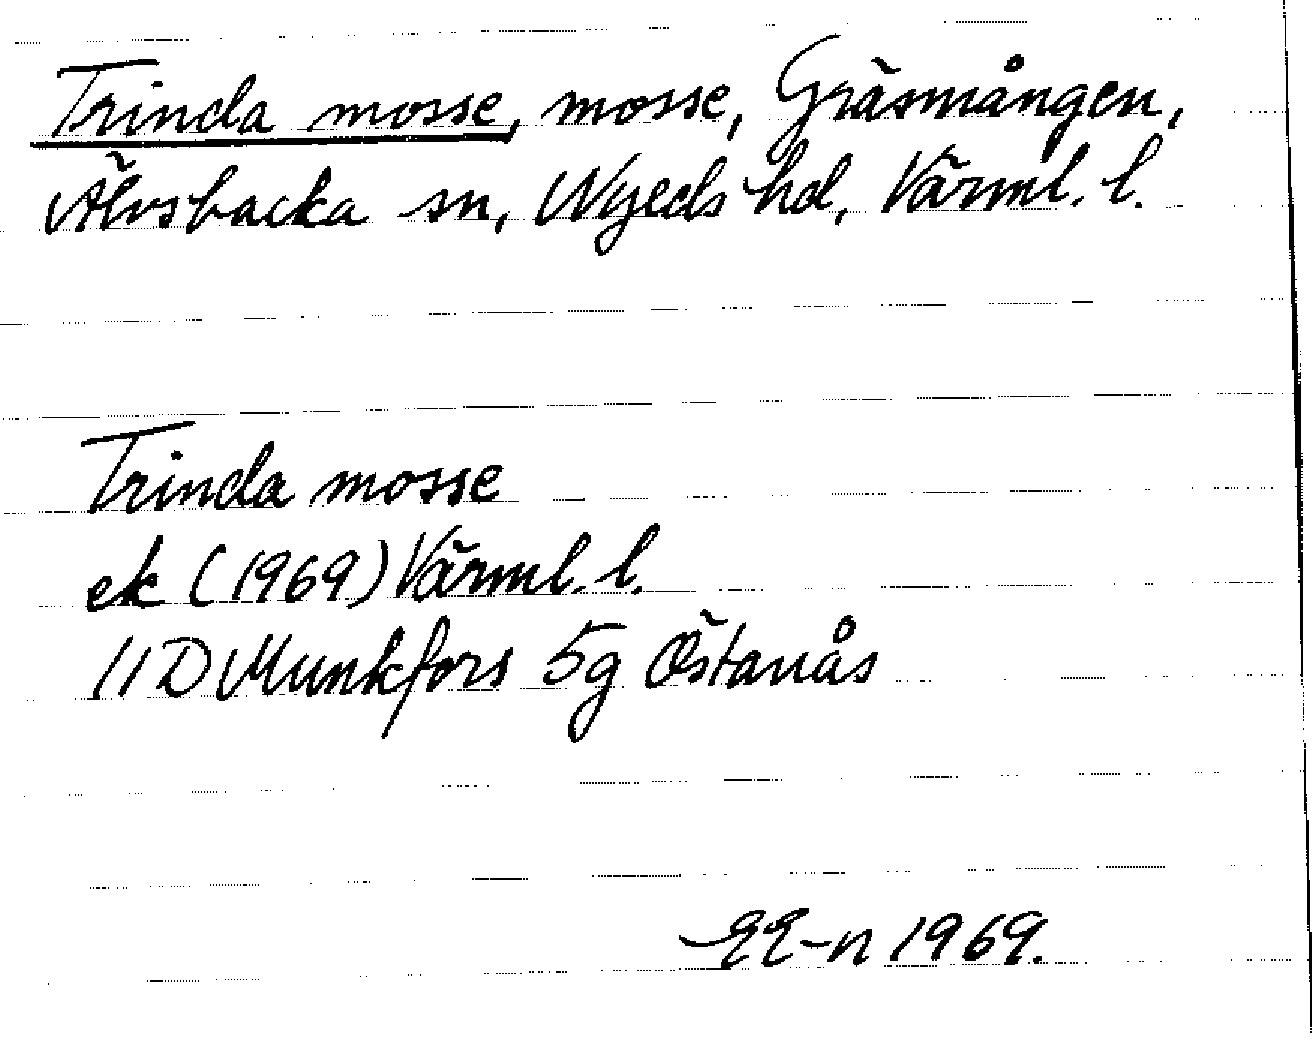 Trinda mosse, mosse, Gräsmången,
Älvsbacka sn, Nyeds hd, Värml. l.
Trinda mosse
ek (1969) Värml. l.
11D Munkfors 5g Östanås
EE-n 1969.